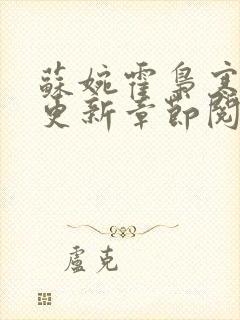 蘇婉霍梟寒
更新章節閱
盧克